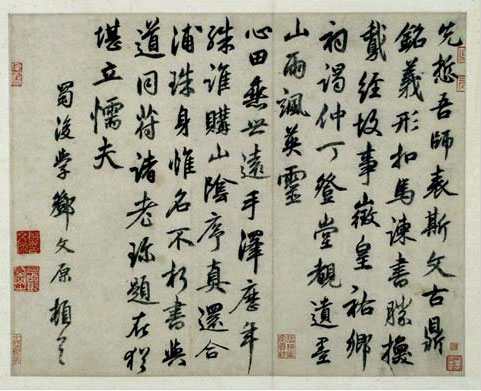 先悊吾師表斯文古鼎
銘義形扣馬諫書勝換
鵞經故事徵皇祐鄉
祠謁仲丁登堂觀遺墨
山雨颯英靈
心田無世遠手澤歷年
殊誰購山陰序真還合
浦珠身惟名不朽書與
道同符諸老珍題在猶
堪立懦夫
蜀後學鄧文原頓首